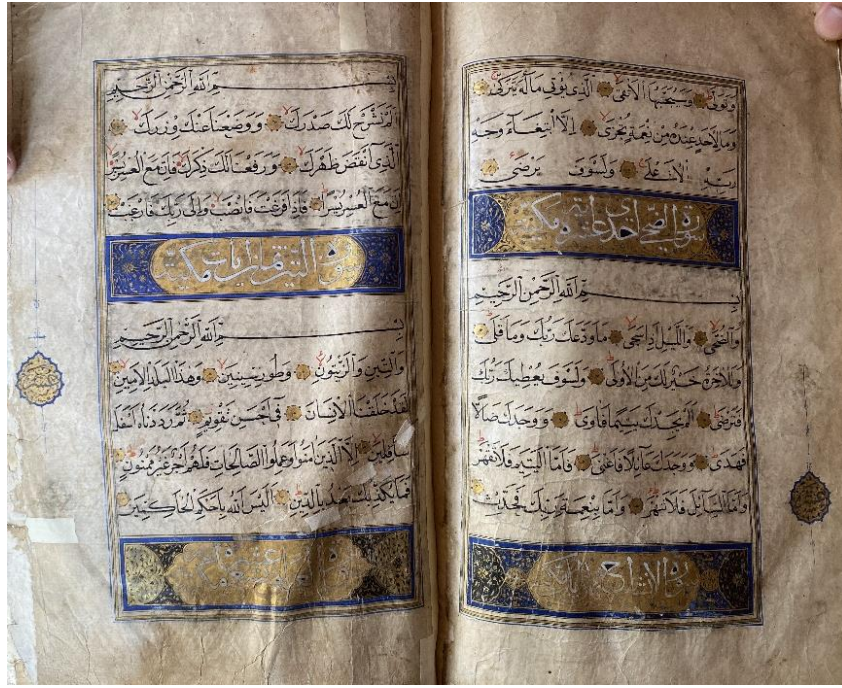 وَتَوَلّى وَسَيُجَنَّبُهَا الْأَتْقَى الَّذِى يُؤْتِى مَالَهُ يَتَزَكّى
وَمَا لِأَحَدٍ عِنْدَهُ مِنْ نِعْمَةٍ تُجْزَى إِلَّا ابْتِغَآءَ وَجْهِ
رَبِّهِ الْأَعْلَى وَلَسَوْفَ يَرْضَى
سورة الضحى احدى عشر اية مكية
بِسْمِ اللهِ الرَّحْمنِ الرَّحِيمِ
وَالضُّحَى وَاللَّيْلِ إِذَا سَجَى مَا وَدَّعَكَ رَبُّكَ وَمَا قَلَى
وَلَلْآخِرَةُ خَيْرٌ لَكَ مِنَ الْأُولَى وَلَسَوْفَ يُعْطِيكَ رَبُّكَ
فَتَرْضَى أَلَمْ يَجِدْكَ يَتِيمًا فَآوَى وَوَجَدَكَ ضَالًّا
فَهَدَى وَوَجَدَكَ عَآئِلًا فَأَغْنَى فَأَمَّا الْيَتِيمَ فَلَا تَقْهَرْ
وَأَمَّا السَّآئِلَ فَلَا تَنْهَرْ وَأَمَّا بِنِعْمَةِ رَبِّكَ فَحَدِّثْ
سورة الانشراح
بِسْمِ اللهِ الرَّحْمنِ الرَّحِيمِ
أَلَمْ نَشْرَحْ لَكَ صَدْرَكَ وَوَضَعْنَا عَنْكَ وِزْرَكَ
الَّذِى أَنْقَضَ ظَهْرَكَ وَرَفَعْنَا لَكَ ذِكْرَكَ فَإِنَّ مَعَ الْعُسْرِ يُسْرًا
إِنَّ مَعَ الْعُسْرِ يُسْرًا فَإِذَا فَرَغْتَ فَانْصَبْ وَإِلَى رَبِّكَ فَارْغَبْ
سورة التين ثمان ايات مكية
بِسْمِ اللهِ الرَّحْمنِ الرَّحِيمِ
وَالتِّينِ وَالزَّيْتُونِ وَطُورِ سِينِينَ وَهذَا الْبَلَدِ الْأَمِينِ
لَقَدْ خَلَقْنَا الْإِنْسَانَ فِى أَحْسَنِ تَقْوِيمٍ ثُمَّ رَدَدْنَاهُ أَسْفَلَ
سَافِلِينَ إِلَّا الَّذِينَ آمَنُوا وَعَمِلُوا الصَّالِحَاتِ فَلَهُمْ أَجْرٌ غَيْرُ مَمْنُونٍ
فَمَا يُكَذِّبُكَ بَعْدُ بِالدِّينِ أَلَيْسَ اللهُ بِأَحْكَمِ الْحَاكِمِينَ